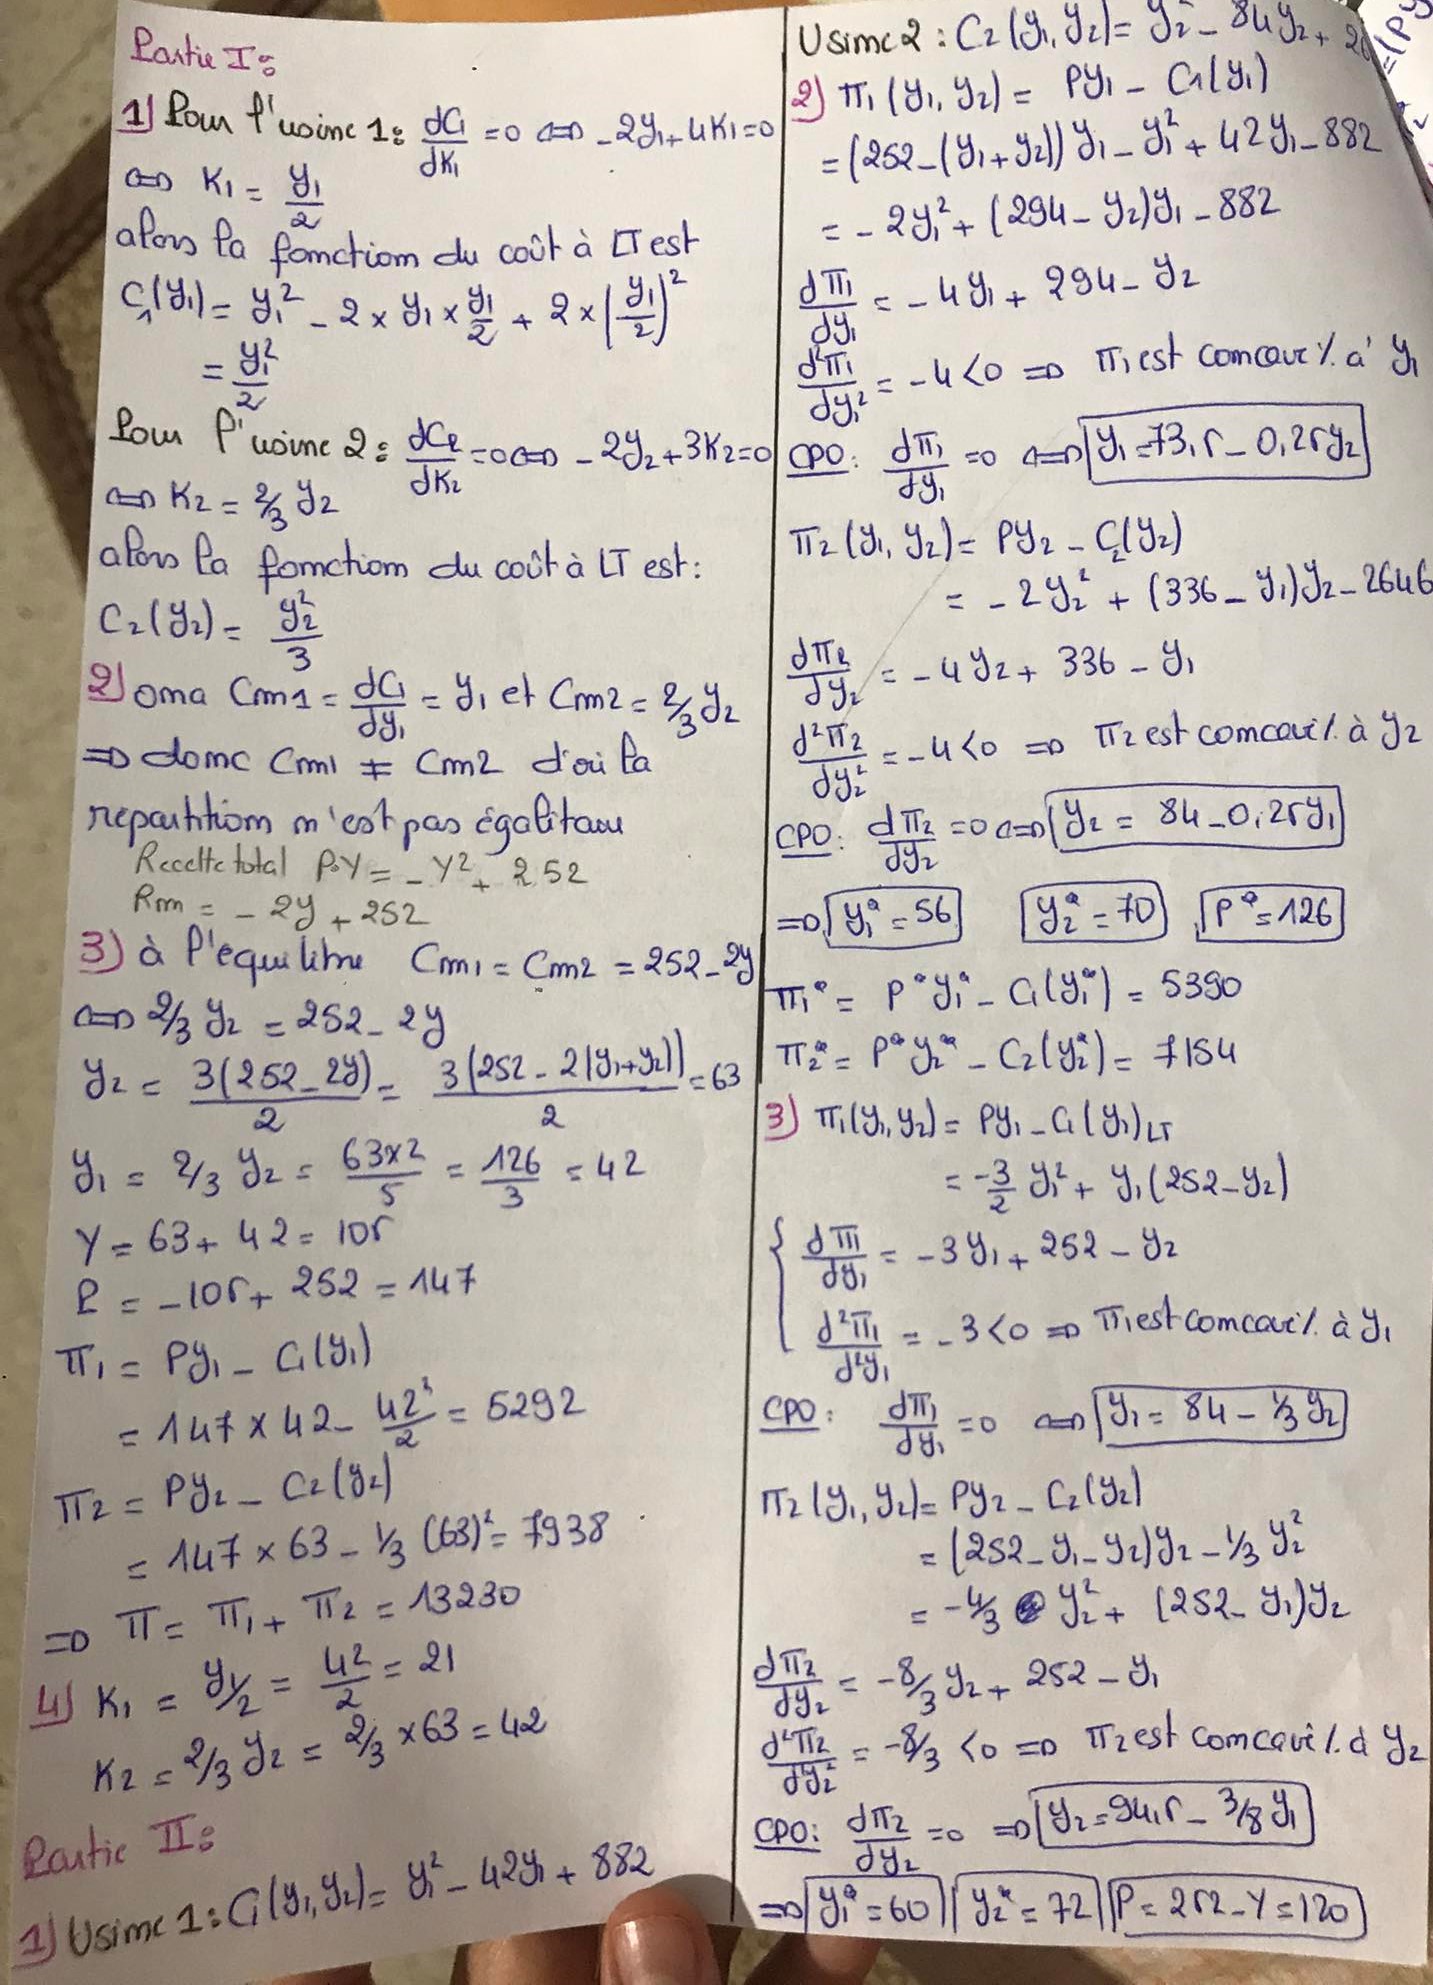 Partie I:
1) Pour l'usine 1: dC1/dK1 = 0 <=> -2y1 + 4K1 = 0
<=> K1 = y1/2
alors la fonction du coût à LT est
C1(y1) = y1² - 2 × y1 × y1/2 + 2 × (y1/2)²
= y1²/2
Pour l'usine 2: dC2/dK2 = 0 <=> -2y2 + 3K2 = 0
<=> K2 = 2/3 y2
alors la fonction du coût à LT est:
C2(y2) = y2²/3
2) on a Cm1 = dC1/dy1 = y1 et Cm2 = 2/3 y2
=> donc Cm1 ≠ Cm2 d'où la
repartition n'est pas égalitaire
Recette total P.Y = -Y² + 252
Rm = -2y + 252
3) à l'equilibre Cm1 = Cm2 = 252 - 2y
<=> 2/3 y2 = 252 - 2y
y2 = 3(252 - 2y)/2 = 3(252 - 2(y1+y2))/2 = 63
y1 = 2/3 y2 = 63×2/5 = 126/3 = 42
Y = 63 + 42 = 105
P = -105 + 252 = 147
π1 = Py1 - C1(y1)
= 147 × 42 - 42²/2 = 5292
π2 = Py2 - C2(y2)
= 147 × 63 - 1/3 (63)² = 7938
=> π = π1 + π2 = 13230
4) K1 = y1/2 = 42/2 = 21
K2 = 2/3 y2 = 2/3 × 63 = 42
Partie II:
1) Usine 1: C1(y1, y2) = y1² - 42y1 + 882
Usine 2: C2(y1, y2) = y2² - 84y2 +
2) π1(y1, y2) = Py1 - C1(y1)
= (252 - (y1 + y2)) y1 - y1² + 42y1 - 882
= -2y1² + (294 - y2)y1 - 882
dπ1/dy1 = -4y1 + 294 - y2
d²π1/dy1² = -4 < 0 => π1 est concave % à y1
CPO: dπ1/dy1 = 0 <=> y1 = 73,5 - 0,25y2
π2(y1, y2) = Py2 - C2(y2)
= -2y2² + (336 - y1)y2 - 2646
dπ2/dy2 = -4y2 + 336 - y1
d²π2/dy2² = -4 < 0 => π2 est concave % à y2
CPO: dπ2/dy2 = 0 <=> y2 = 84 - 0,25y1
=> y1* = 56 y2* = 70 P* = 126
π1* = P*y1* - C1(y1*) = 5390
π2* = P*y2* - C2(y2*) = 7154
3) π1(y1, y2) = Py1 - C1(y1)LT
= -3/2 y1² + y1(252 - y2)
{ dπ1/dy1 = -3y1 + 252 - y2
d²π1/d²y1 = -3 < 0 => π1 est concave % à y1
CPO: dπ1/dy1 = 0 <=> y1 = 84 - 1/3 y2
π2(y1, y2) = Py2 - C2(y2)
= (252 - y1 - y2)y2 - 1/3 y2²
= -4/3 y2² + (252 - y1)y2
dπ2/dy2 = -8/3 y2 + 252 - y1
d²π2/dy2² = -8/3 < 0 => π2 est concave % à y2
CPO: dπ2/dy2 = 0 => y2 = 94,5 - 3/8 y1
=> y1* = 60 y2* = 72 P = 252 - Y = 120